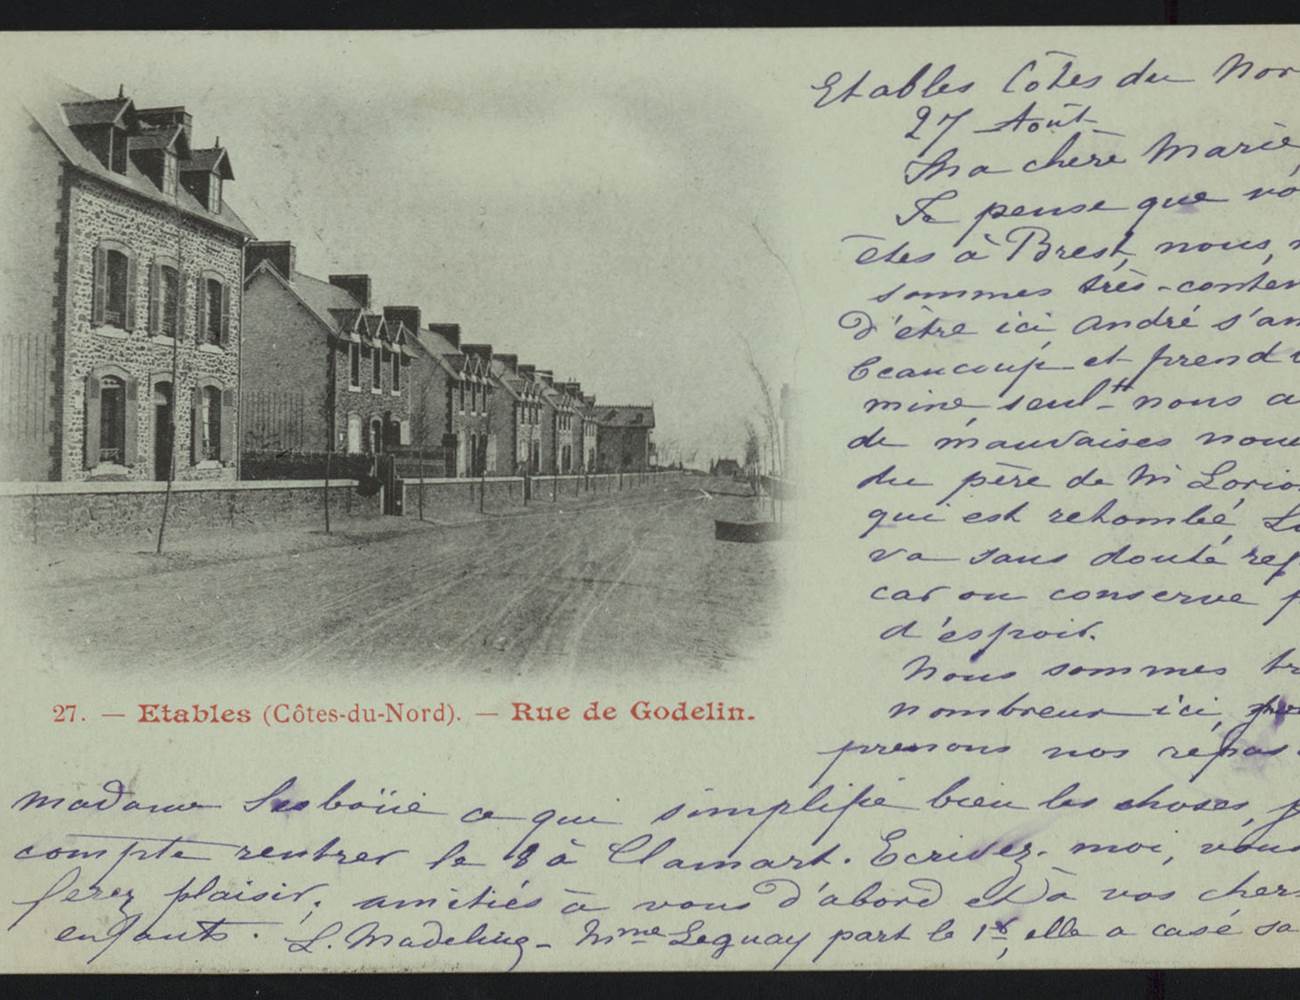 27. — Etables (Côtes-du-Nord). — Rue de Godelin.
Etables Côtes du Nor
27 Août
Ma chère Marie,
Je pense que vo
êtes à Brest, nous, n
sommes très-conten
d'être ici, André s'am
beaucoup et prend
mine, seult nous a
de mauvaises nouv
du père de Mr Lorio
qui est retombé,
va sans doute
car on conserve p
d'espoir.
Nous sommes tr
nombreux ici,
prenons nos repas
madame ce qui simplifie bien les choses, j
compte rentrer le 8 à Clamart. Ecrivez-moi, vous
ferez plaisir; amitiés à vous d'abord et à vos chers
enfants. L. Madeling - Mme Leguay part le 1er, elle a casé sa